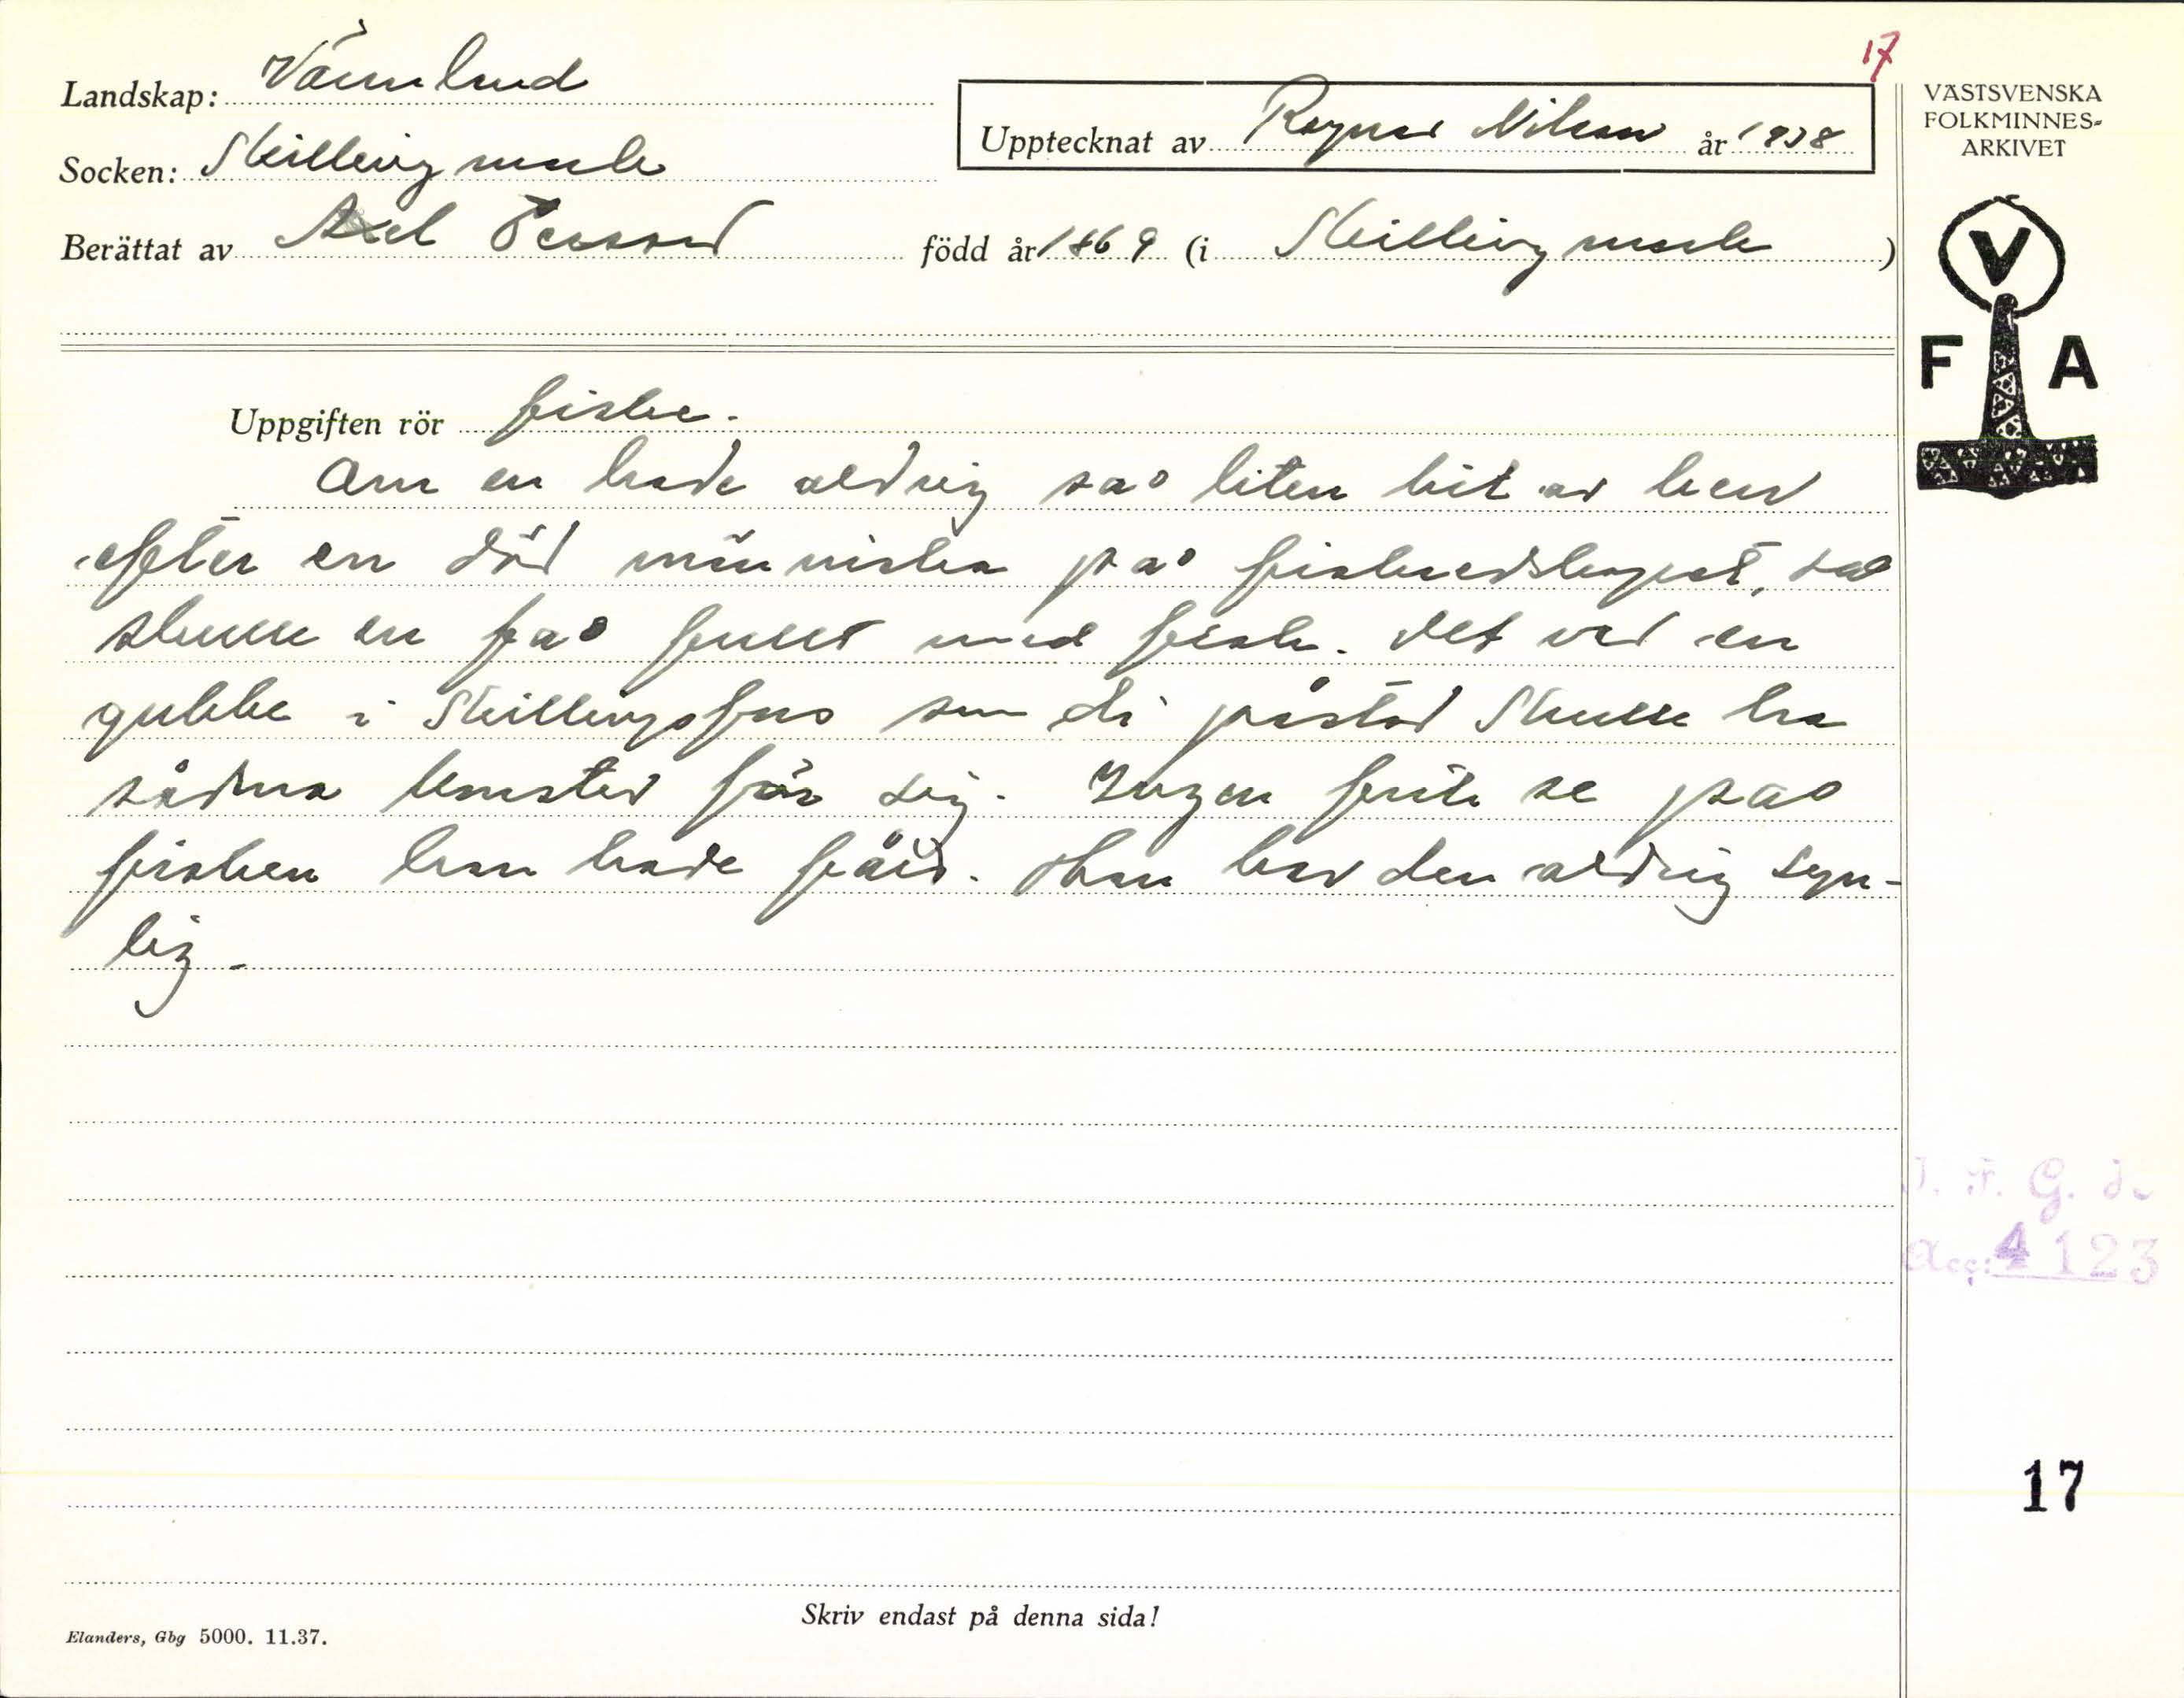 17
Landskap: Värmland
Upptecknat av Ragnar Nilsson år 1938
VÄSTSVENSKA
FOLKMINNES-
ARKIVET
Socken: Skillingmark
Berättat av Axel Persson född år 1869 (i Skillingmark)
V
F A
Uppgiften rör fiske.
Om en hade aldrig sao liten bit av ben
efter en död människa pao fiskredskapet, sao
skulle en fao fullt med fisk. Det var en
gubbe i Skillingsfors som di påstod skulle ha
sådna konster för sig. Ingen fick se pao
fisken han hade fått. Han bar den aldrig syn-
lig.
Acc: 4123
17
Skriv endast på denna sida!
Elanders, Gbg 5000. 11.37.